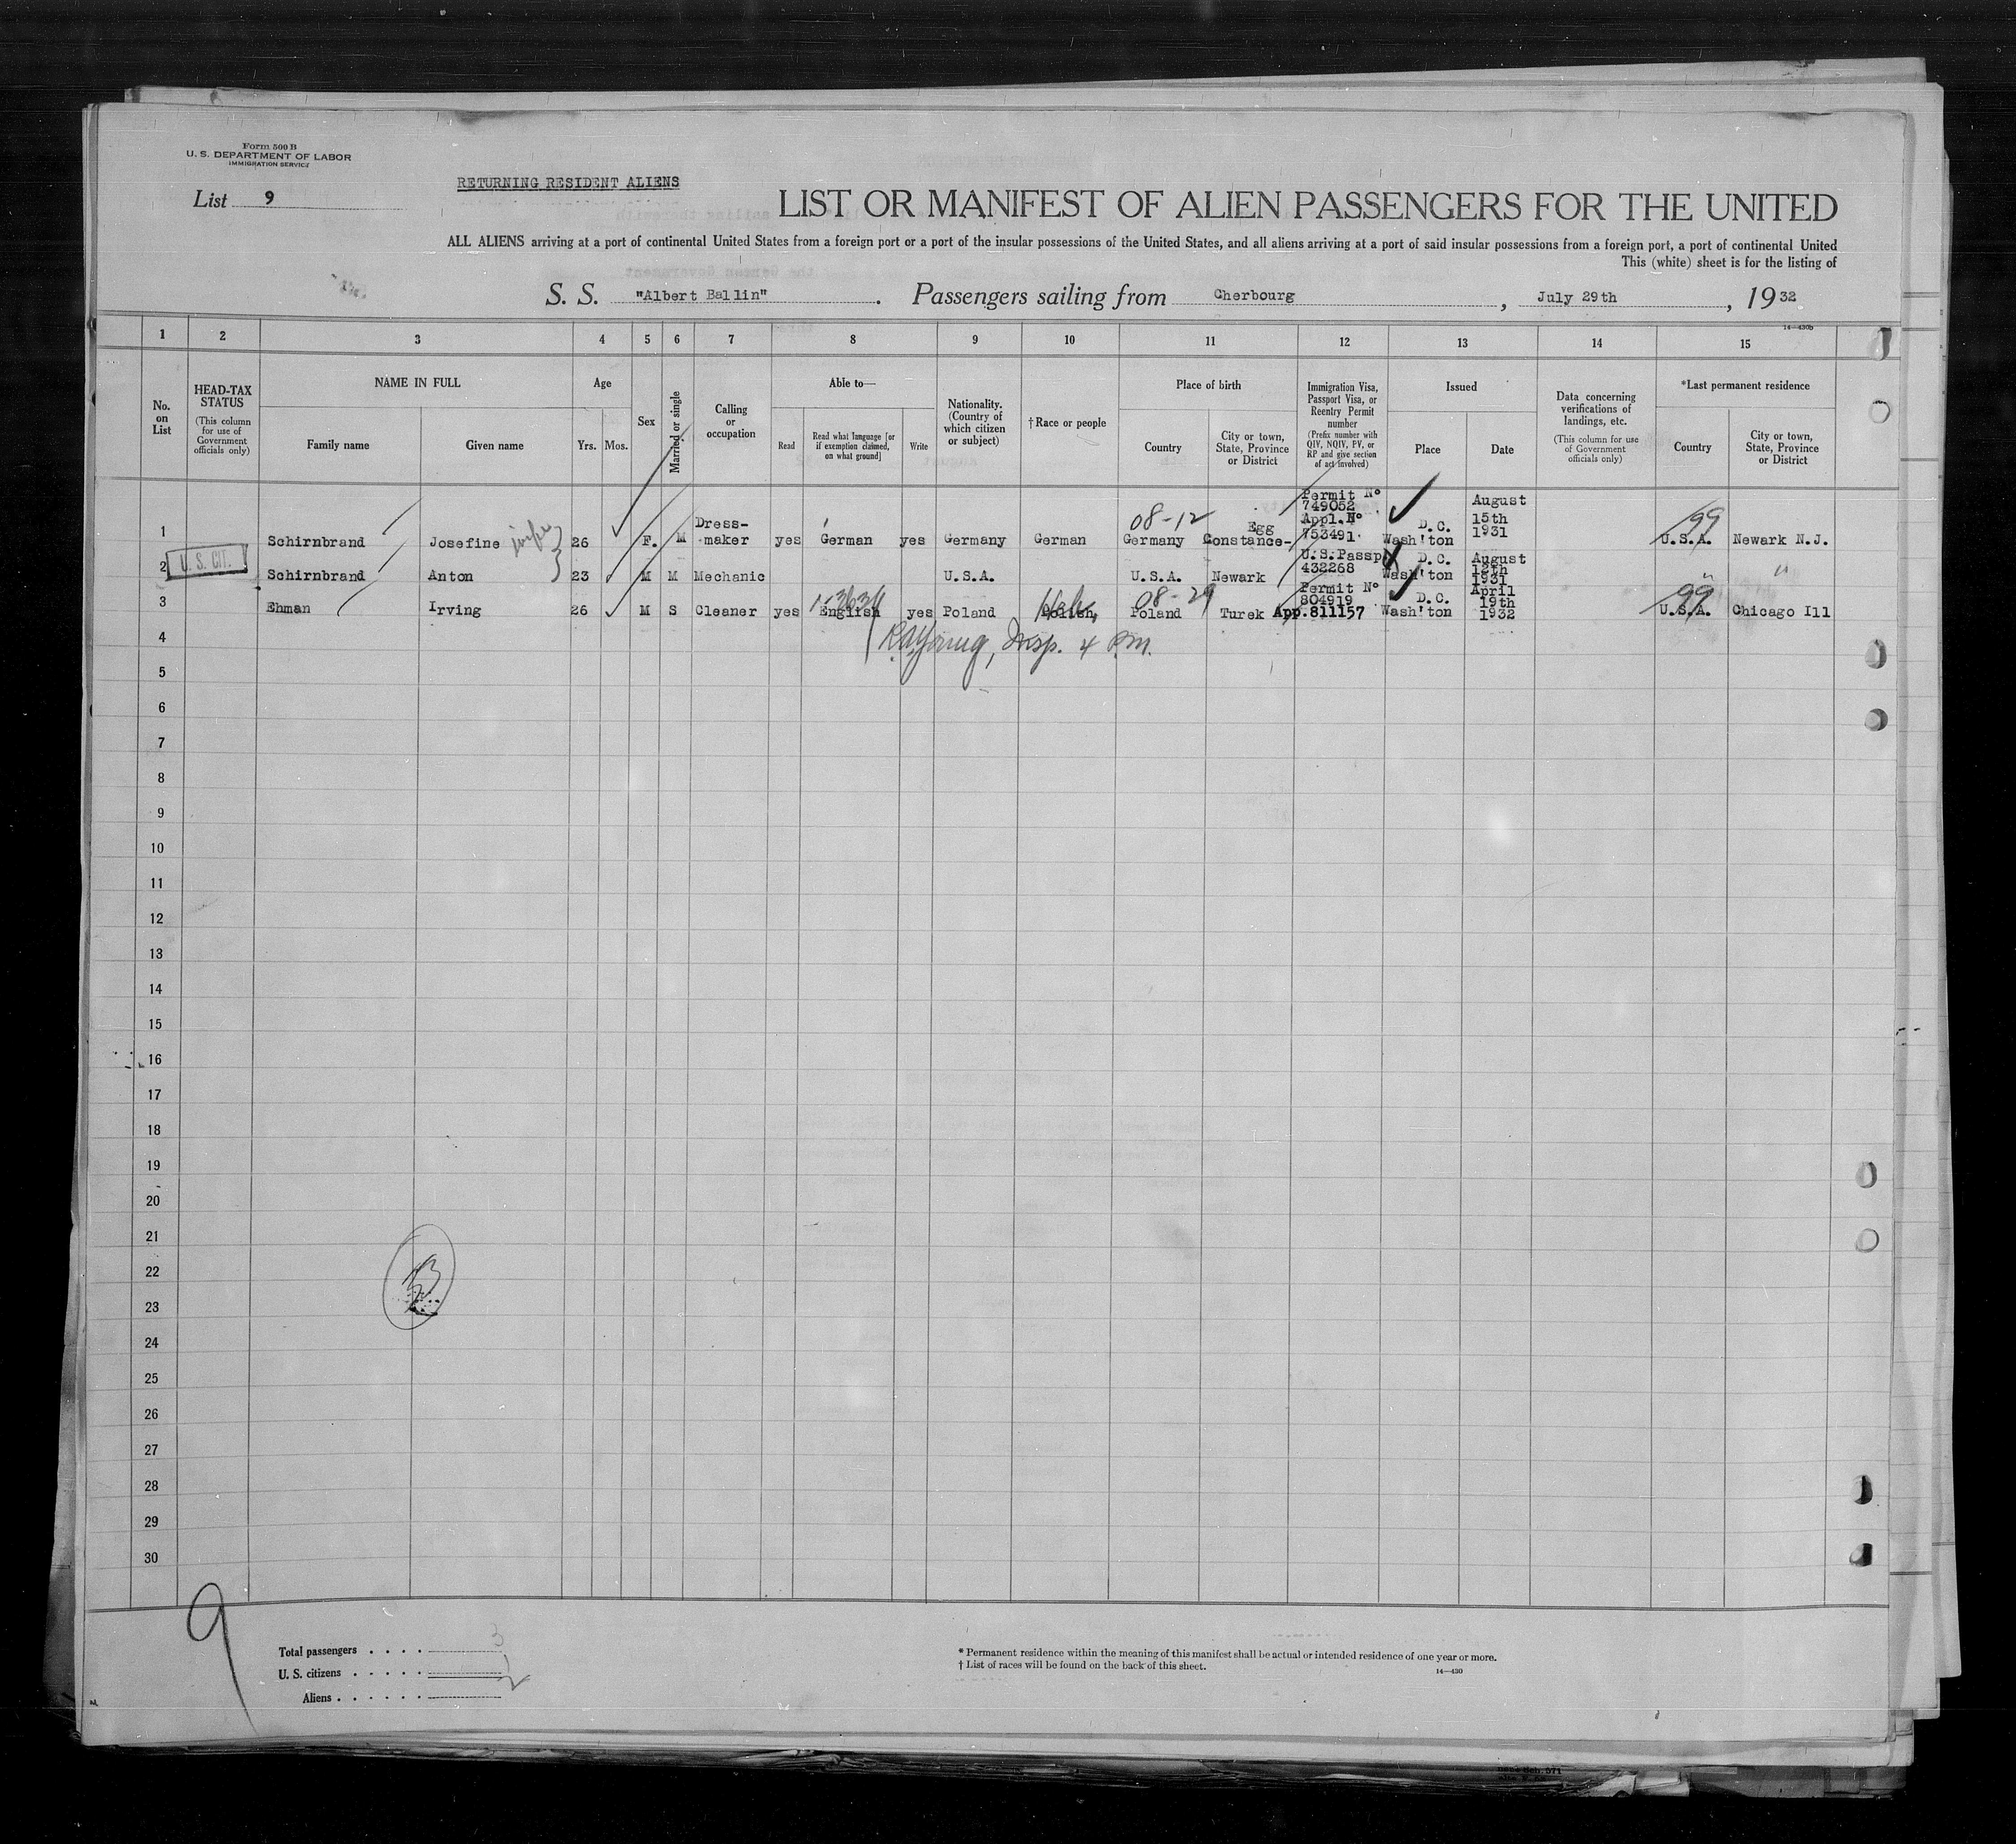 Form 500 B
U. S. DEPARTMENT OF LABOR
IMMIGRATION SERVICE
List 9
RETURNING RESIDENT ALIENS
LIST OR MANIFEST OF ALIEN PASSENGERS FOR THE UNITED
ALL ALIENS arriving at a port of continental United States from a foreign port or a port of the insular possessions of the United States, and all aliens arriving at a port of said insular possessions from a foreign port, a port of continental United
This (white) sheet is for the listing of
S. S. "Albert Ballin" . Passengers sailing from Cherbourg , July 29th , 1932
14—430b
1 2 3 4 5 6 7 8 9 10 11 12 13 14 15
No. on List
HEAD-TAX STATUS
(This column for use of Government officials only)
NAME IN FULL
Family name Given name
Age
Yrs. Mos.
Sex
Married or single
Calling or occupation
Able to—
Read Read what language [or if exemption claimed, on what ground] Write
Nationality. (Country of which citizen or subject)
† Race or people
Place of birth
Country City or town, State, Province or District
Immigration Visa, Passport Visa, or Reentry Permit number
(Prefix number with QIV, NQIV, PV, or RP and give section of act involved)
Issued
Place Date
Data concerning verifications of landings, etc.
(This column for use of Government officials only)
*Last permanent residence
Country City or town, State, Province or District
1 Schirnbrand Josefine wife 26 F. M Dress-maker yes German yes Germany German 08-12 Germany Egg Constance- Permit No 749052 Appl.No 753491. D.C. Wash'ton August 15th 1931 99 U.S.A. Newark N.J.
U. S. CIT.
2 Schirnbrand Anton 23 M M Mechanic U.S.A. U.S.A. Newark U.S.Passp 432268 D.C. Wash'ton August 1931 " "
3 Ehman Irving 26 M S Cleaner yes English yes Poland Polish, 08-29 Poland Turek Permit No 804919 App.811157 D.C. Wash'ton April 19th 1932 99 U.S.A. Chicago Ill
4
Insp. 4 P.M.
5
6
7
8
9
10
11
12
13
14
15
16
17
18
19
20
21
22
23
24
25
26
27
28
29
30
9
Total passengers . . . . 3
U. S. citizens . . . . . 1
Aliens . . . . . . 2
* Permanent residence within the meaning of this manifest shall be actual or intended residence of one year or more.
† List of races will be found on the back of this sheet.
14—430